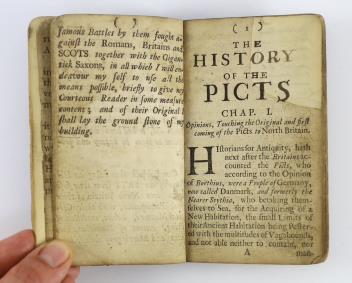 ( )
famous Battles by them fought a-
gainst the Romans, Britains and
SCOTS together with the Gigan-
tick Saxons, in all which I will en-
deavour my self to use all the
means possible, briefly to give my
Courteous Reader in some measure
content; and of their Original I
shall lay the ground stone of my
building.
( 1 )
THE
HISTORY
OF THE
PICTS
CHAP. I.
Opinions, Touching the Original and first
coming of the Picts to North Britain.
HIstorians for Antiquity, hath
next after the Britains ac-
counted the Picts, who
according to the Opinion
of Boethius, were a People of Germany,
now called Danmark, and formerly the
Nearer Scythia, who betaking them-
selves to Sea, for the Acquiring of a
New Habitation, the small Limits of
their Ancient Habitation being Pester-
ed with the multitudes of Vagabonds,
and not able neither to contain, nor
A
man-